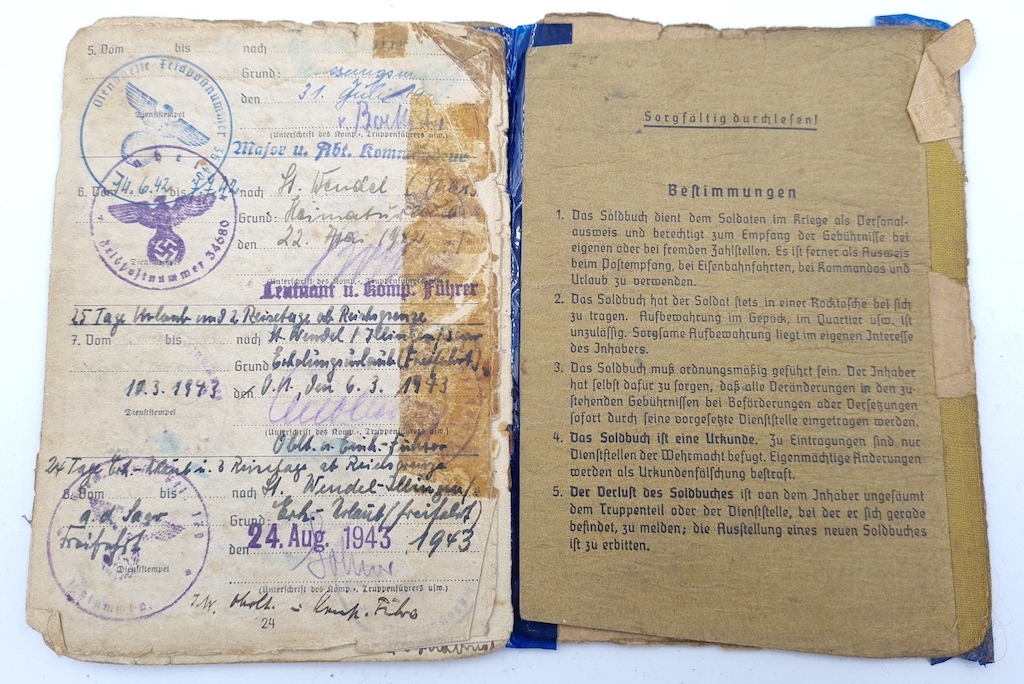 5. Vom bis nach
Grund:
den 31. Juli
Dienststempel
(Unterschrift des Komp.-, Truppenführers usw.)
Major u. Abt. Kommandeur
Dienststelle Feldpostnummer
6. Vom 14.6.42 bis 7.7.42 nach St. Wendel
Grund: Heimaturlaub
den 22. Mai 1942
Feldpostnummer 34680
Leutnant u. Komp. Führer
25 Tage Urlaub und 2 Reisetage ab Reichsgrenze
7. Vom bis nach St. Wendel / Illingen/Saar
Grund Erholungsurlaub (Freifahrt)
10.3.1943 den O.U., den 6.3.1943
Dienststempel
(Unterschrift des Komp.-, Truppenführers usw.)
Oblt. u. Einh.-Führer
24 Tage Erh.-Urlaub u. 3 Reisetage ab Reichsgrenze
8. Vom bis nach St. Wendel-Illingen/
a.d. Saar Grund: Erh.-Urlaub (Freifahrt)
Freifahrt den 24. Aug. 1943 1943
Dienststempel
(Unterschrift des Komp.-, Truppenführers usw.)
Oblt. u. Komp. Führer
24
Sorgfältig durchlesen!
Bestimmungen
1. Das Soldbuch dient dem Soldaten im Kriege als Personal-
ausweis und berechtigt zum Empfang der Gebührnisse bei
eigenen oder bei fremden Zahlstellen. Es ist ferner als Ausweis
beim Postempfang, bei Eisenbahnfahrten, bei Kommandos und
Urlaub zu verwenden.
2. Das Soldbuch hat der Soldat stets in einer Rocktasche bei sich
zu tragen. Aufbewahrung im Gepäck, im Quartier usw. ist
unzulässig. Sorgsame Aufbewahrung liegt im eigenen Interesse
des Inhabers.
3. Das Soldbuch muß ordnungsmäßig geführt sein. Der Inhaber
hat selbst dafür zu sorgen, daß alle Veränderungen in den zu-
stehenden Gebührnissen bei Beförderungen oder Versetzungen
sofort durch seine vorgesetzte Dienststelle eingetragen werden.
4. Das Soldbuch ist eine Urkunde. Zu Eintragungen sind nur
Dienststellen der Wehrmacht befugt. Eigenmächtige Änderungen
werden als Urkundenfälschung bestraft.
5. Der Verlust des Soldbuches ist von dem Inhaber ungesäumt
dem Truppenteil oder der Dienststelle, bei der er sich gerade
befindet, zu melden; die Ausstellung eines neuen Soldbuches
ist zu erbitten.